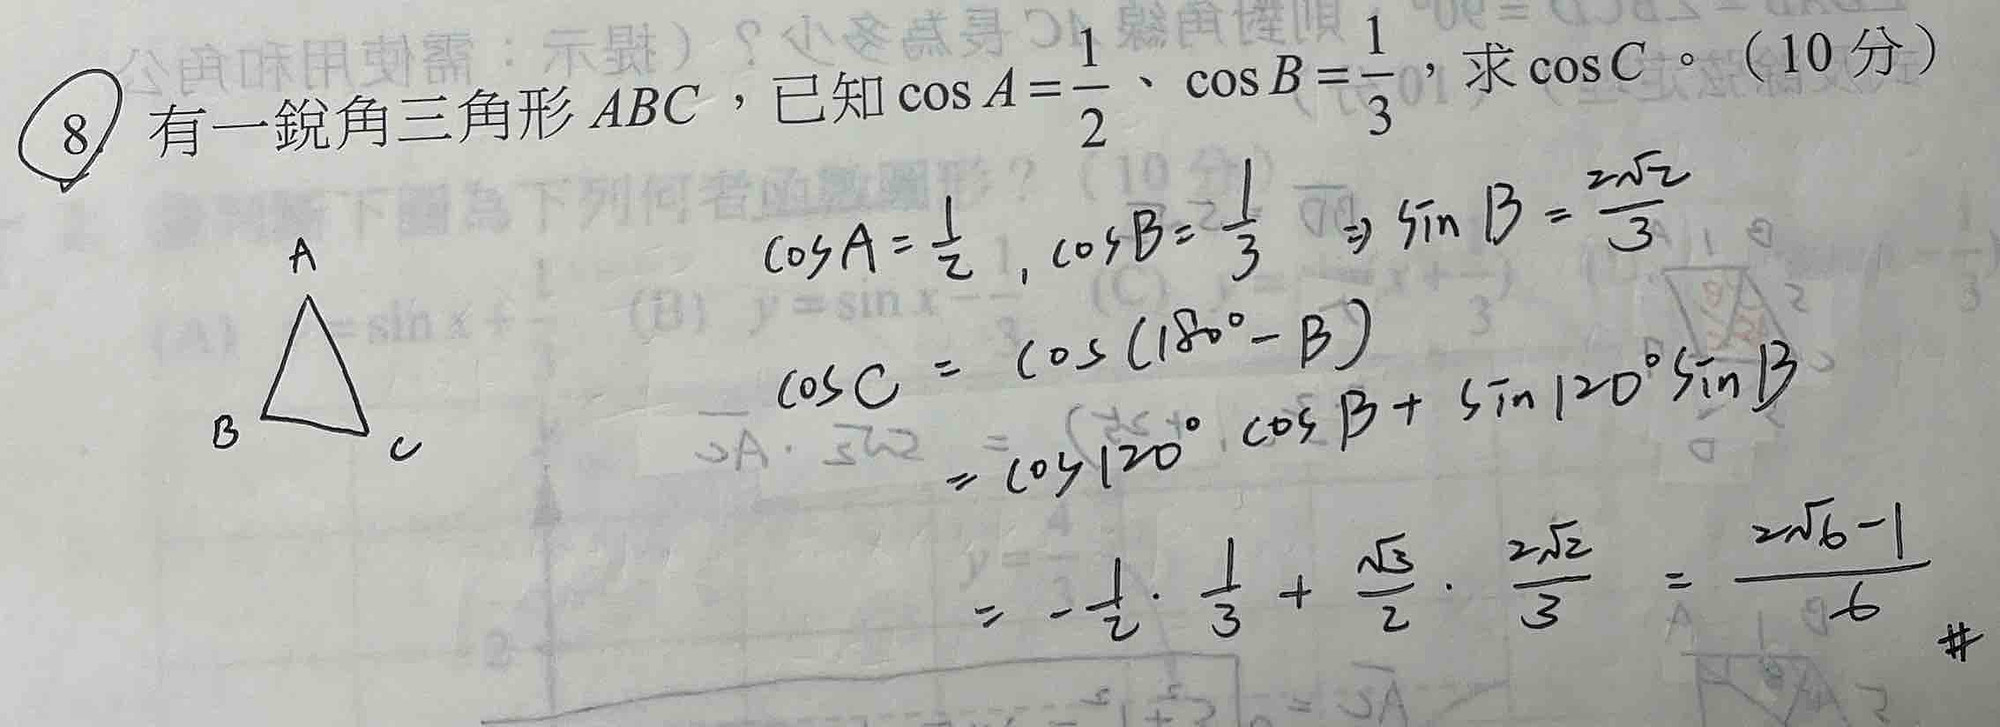 8. 有一銳角三角形 ABC，已知 cos A = 1/2、cos B = 1/3，求 cos C。（10 分）
cos A = 1/2 , cos B = 1/3 ⇒ sin B = 2√2/3
A
B
C
cos C = cos (180° - B)
= cos 120° cos B + sin 120° sin B
= - 1/2 · 1/3 + √3/2 · 2√2/3 = (2√6 - 1)/6 #